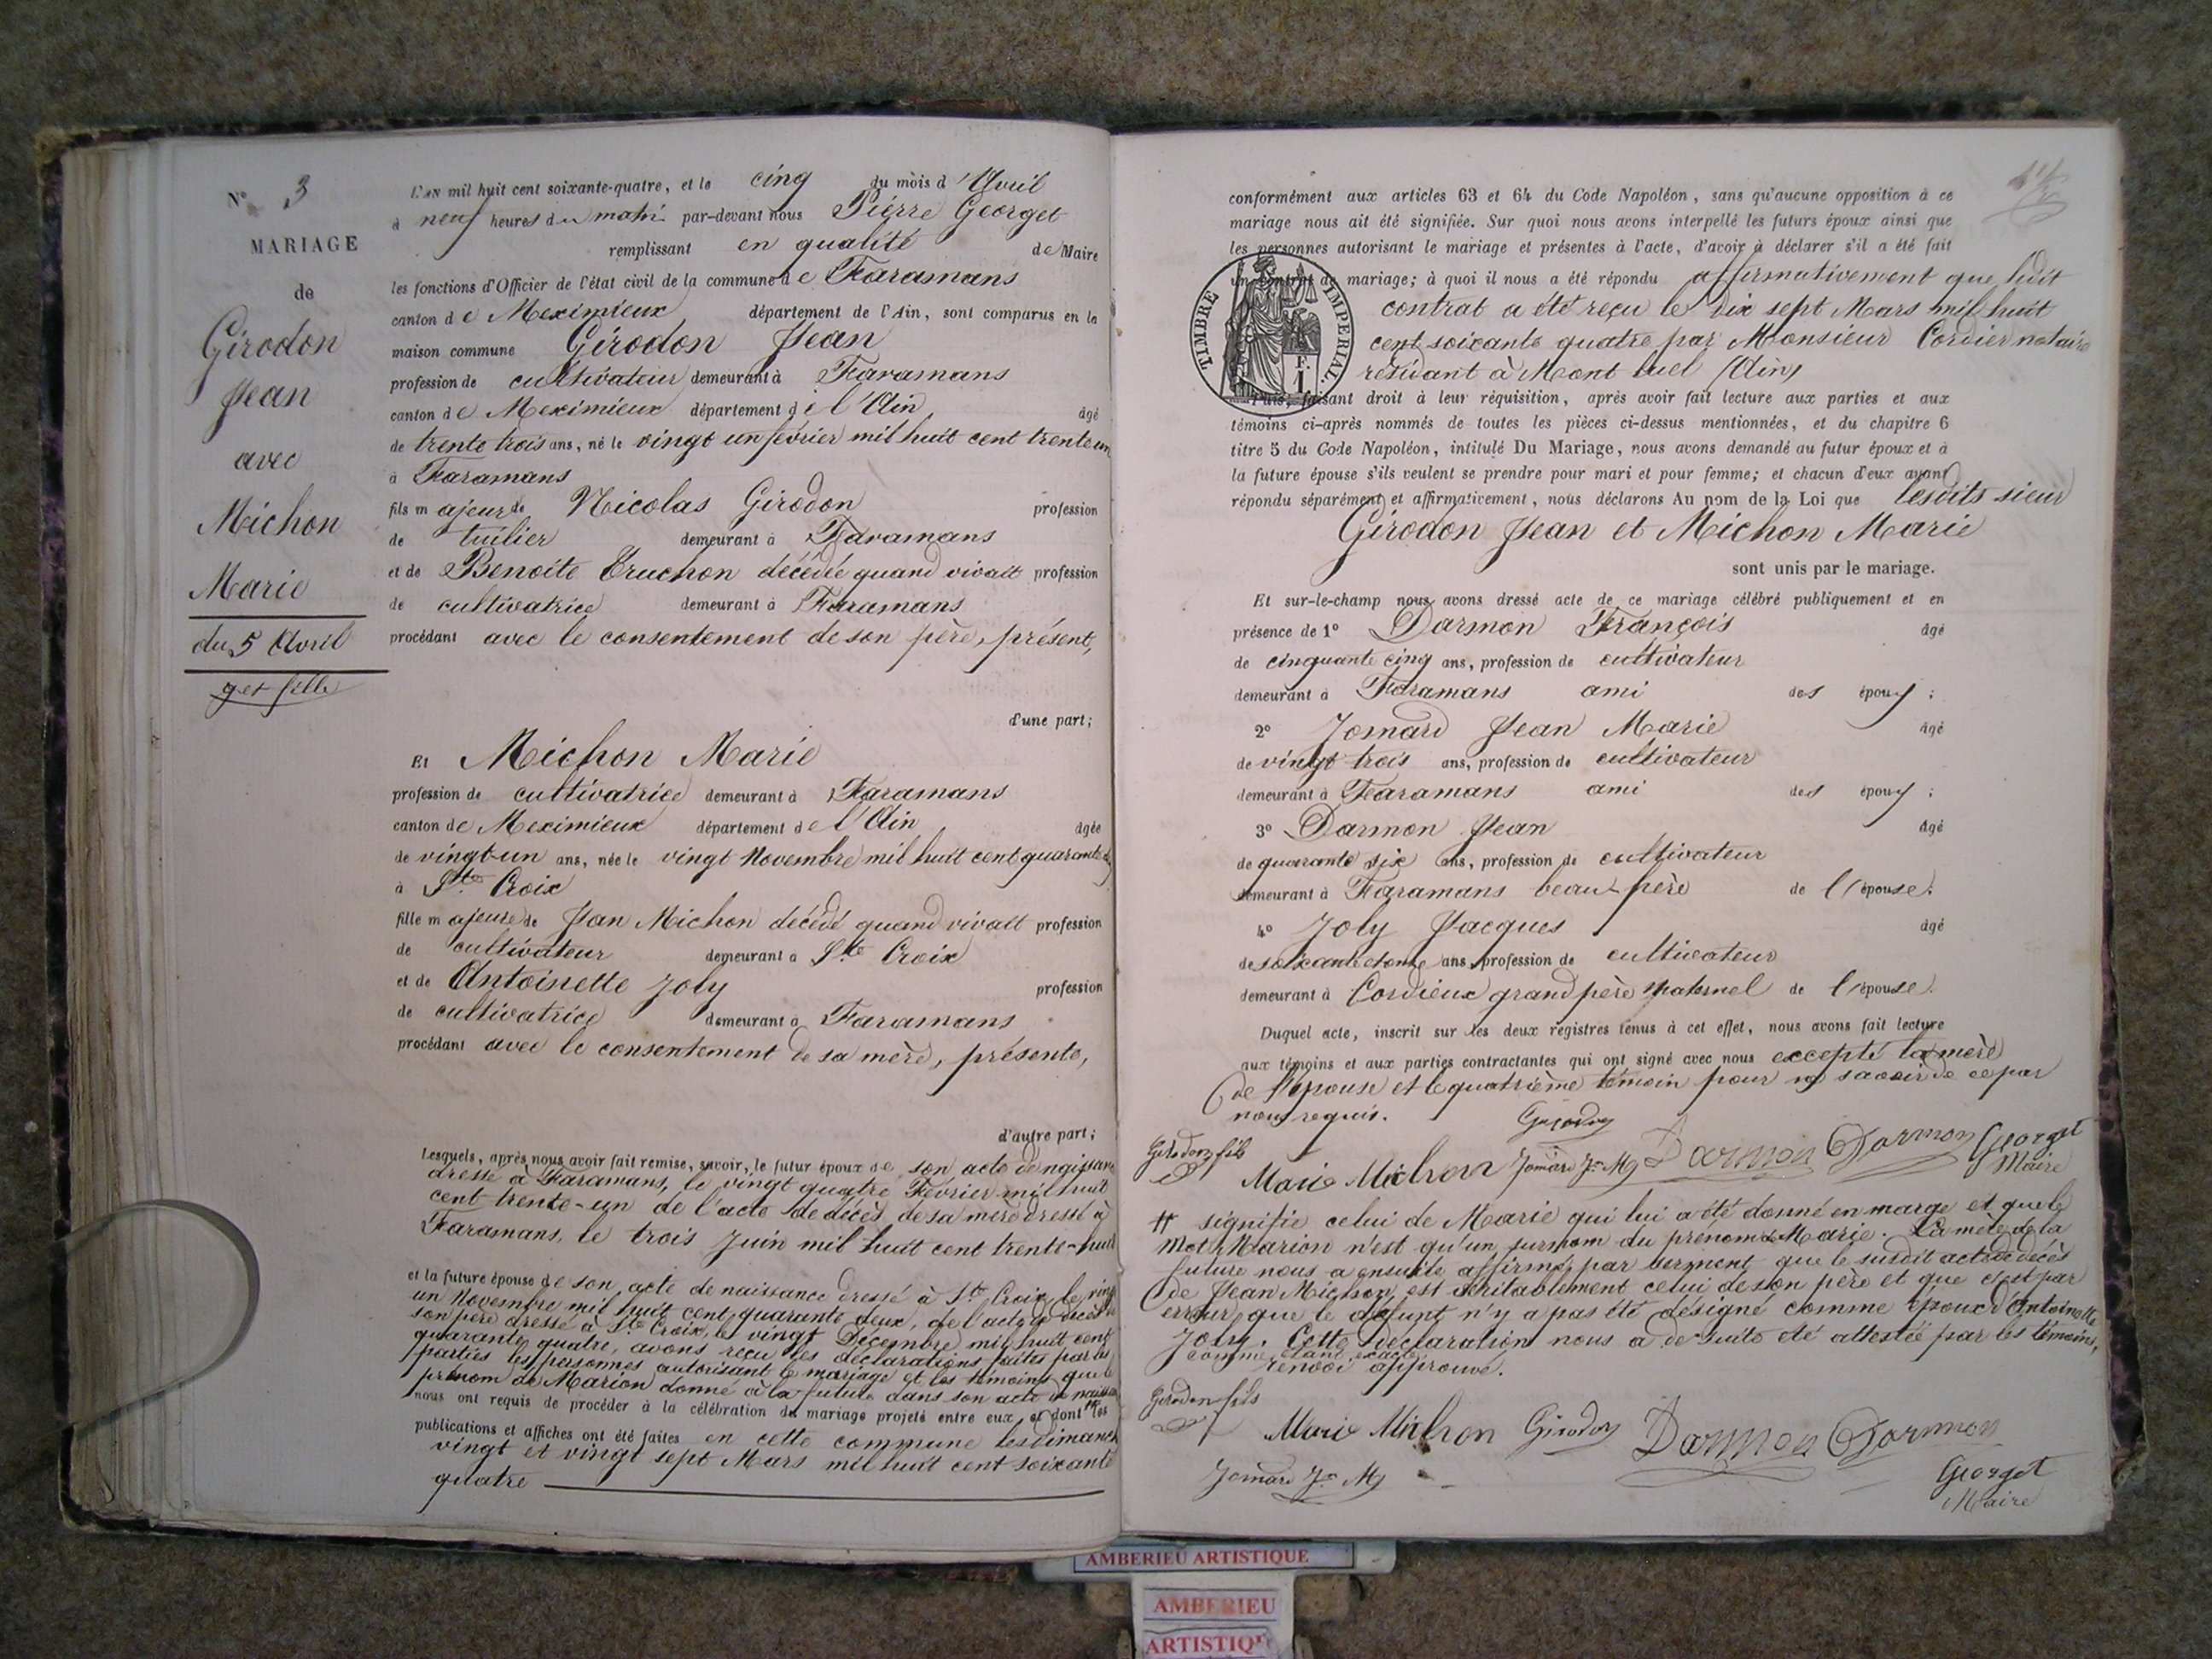 N° 3
MARIAGE
de
Girodon
Jean
avec
Michon
Marie
du 5 Avril
L'AN mil huit cent soixante-quatre, et le cinq du mois d'Avril
à neuf heures du matin par-devant nous Pierre Georget
remplissant en qualité de Maire
les fonctions d'Officier de l'état civil de la commune de Faramans
canton de Meximieux département de l'Ain, sont comparus en la
maison commune Girodon Jean
profession de cultivateur demeurant à Faramans
canton de Meximieux département de l'Ain âgé
de trente trois ans, né le vingt un février mil huit cent trente un
à Faramans
fils majeur de Nicolas Girodon profession
de tuilier demeurant à Faramans
et de Benoite Truchon décédée quand vivait profession
de cultivatrice demeurant à Faramans
procédant avec le consentement de son père, présent,
d'une part;
Et Michon Marie
profession de cultivatrice demeurant à Faramans
canton de Meximieux département de l'Ain âgée
de vingt-un ans, née le vingt Novembre mil huit cent quarante
à Ste Croix
fille majeure de Jean Michon décédé quand vivait profession
de cultivateur demeurant à Ste Croix
et de Antoinette Joly profession
de cultivatrice demeurant à Faramans
procédant avec le consentement de sa mère, présente,
d'autre part;
Lesquels, après nous avoir fait remise, savoir, le futur époux de son acte de naissance
dressé à Faramans, le vingt quatre Février mil huit
cent trente-un de l'acte de décès de sa mère dressé à
Faramans, le trois Juin mil huit cent trente-huit
et la future épouse de son acte de naissance dressé à Ste Croix le vingt
un Novembre mil huit cent quarante deux, de l'acte de décès de
son père dressé à Ste Croix, le vingt Décembre mil huit cent
quarante quatre, avons reçu les déclarations faites par les
parties les personnes autorisant le mariage et les témoins que le
prénom de Marion donné à la future dans son acte de naissance
nous ont requis de procéder à la célébration du mariage projeté entre eux, et dont les
publications et affiches ont été faites en cette commune les dimanches
vingt et vingt sept Mars mil huit cent soixante
quatre
conformément aux articles 63 et 64 du Code Napoléon, sans qu'aucune opposition à ce
mariage nous ait été signifiée. Sur quoi nous avons interpellé les futurs époux ainsi que
les personnes autorisant le mariage et présentes à l'acte, d'avoir à déclarer s'il a été fait
un contrat de mariage; à quoi il nous a été répondu affirmativement que ledit
contrat a été reçu le dix sept Mars mil huit
cent soixante quatre par Monsieur Cordier notaire
résidant à Mont luel (Ain)
TIMBRE IMPERIAL.
F. 1
Puis, faisant droit à leur réquisition, après avoir fait lecture aux parties et aux
témoins ci-après nommés de toutes les pièces ci-dessus mentionnées, et du chapitre 6
titre 5 du Code Napoléon, intitulé Du Mariage, nous avons demandé au futur époux et à
la future épouse s'ils veulent se prendre pour mari et pour femme; et chacun d'eux ayant
répondu séparément et affirmativement, nous déclarons Au nom de la Loi que lesdits sieur
Girodon Jean et Michon Marie
sont unis par le mariage.
Et sur-le-champ nous avons dressé acte de ce mariage célébré publiquement et en
présence de 1° Darmon François âgé
de cinquante cinq ans, profession de cultivateur
demeurant à Faramans ami des époux;
2° Jomard Jean Marie âgé
de vingt trois ans, profession de cultivateur
demeurant à Faramans ami des époux;
3° Darmon Jean âgé
de quarante six ans, profession de cultivateur
demeurant à Faramans beau-père de l'épouse.
4° Joly Jacques âgé
de ans, profession de cultivateur
demeurant à Cordieux grand père maternel de l'épouse.
Duquel acte, inscrit sur les deux registres tenus à cet effet, nous avons fait lecture
aux témoins et aux parties contractantes qui ont signé avec nous excepté la mère
de l'épouse et le quatrième témoin pour ne savoir de ce par
nous requis. Girodon
Girodon fils Marie Michon Jomard Jn My Darmon Darmon Georget
Maire
# signifie celui de Marie qui lui a été donné en marge et que le
mot Marion n'est qu'un surnom du prénom de Marie. La mère de la
future nous a ensuite affirmé par serment que le susdit acte de décès
de Jean Michon est véritablement celui de son père et que c'est par
erreur que le défunt n'y a pas été désigné comme époux d'Antoinette
Joly. Cette déclaration nous a de suite été attestée par les témoins,
comme étant exacte.
renvoi approuvé.
Girodon fils
Marie Michon Girodon Darmon Darmon
Jomard Jn My Georget
Maire
AMBERIEU ARTISTIQUE
AMBERIEU
ARTISTIQUE